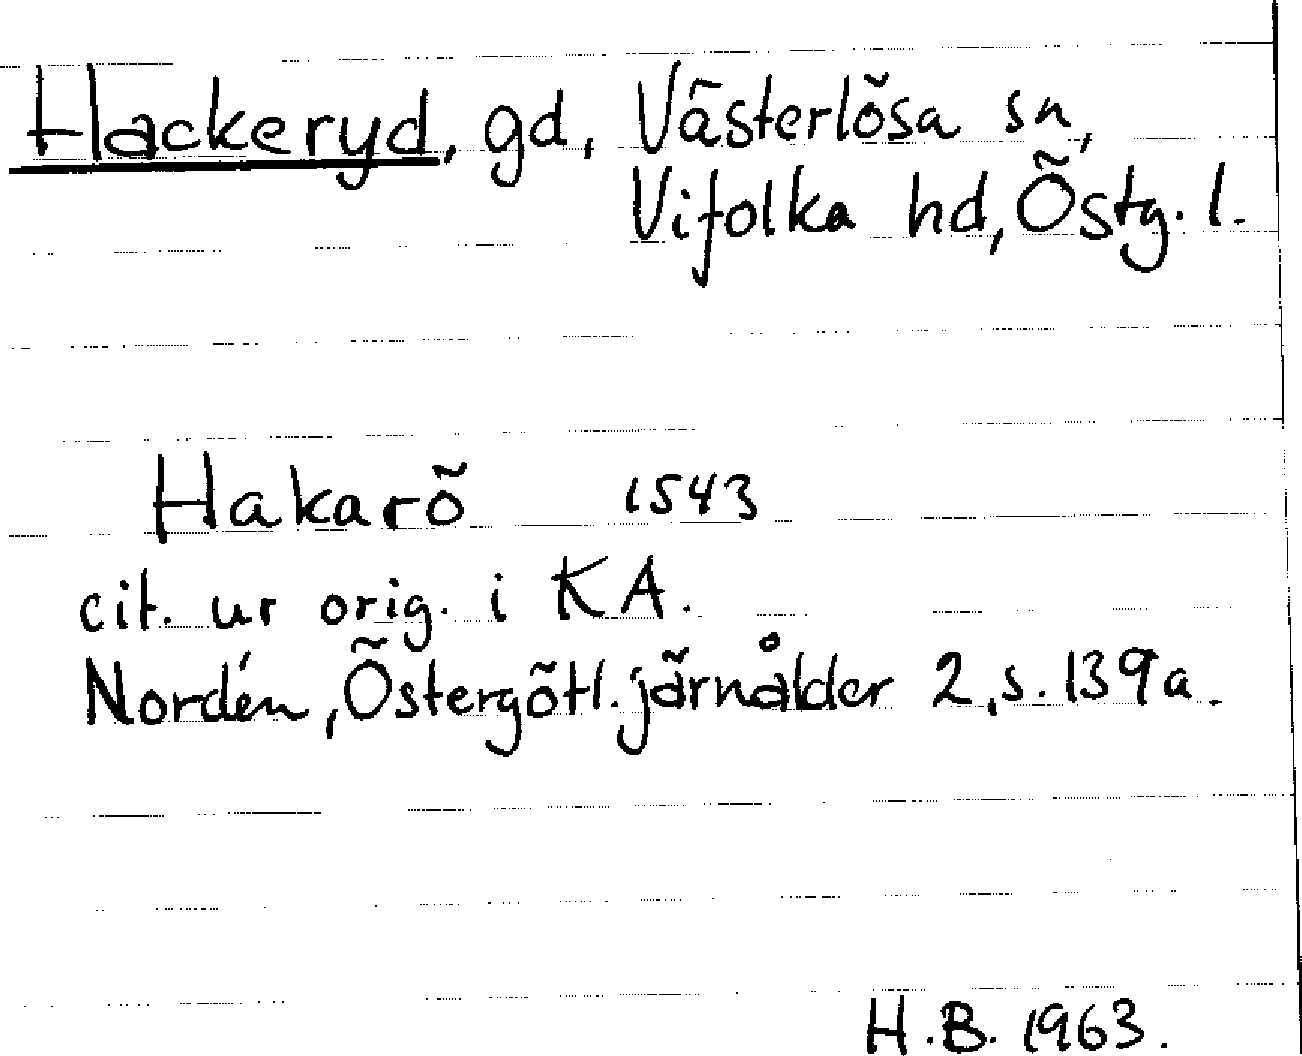 Hackeryd, gd, Västerlösa sn,
Vifolka hd, Östg. l.
Hakarö 1543
cit. ur orig. i KA.
Nordén, Östergötl. järnålder 2, s. 139 a.
H.B. 1963.